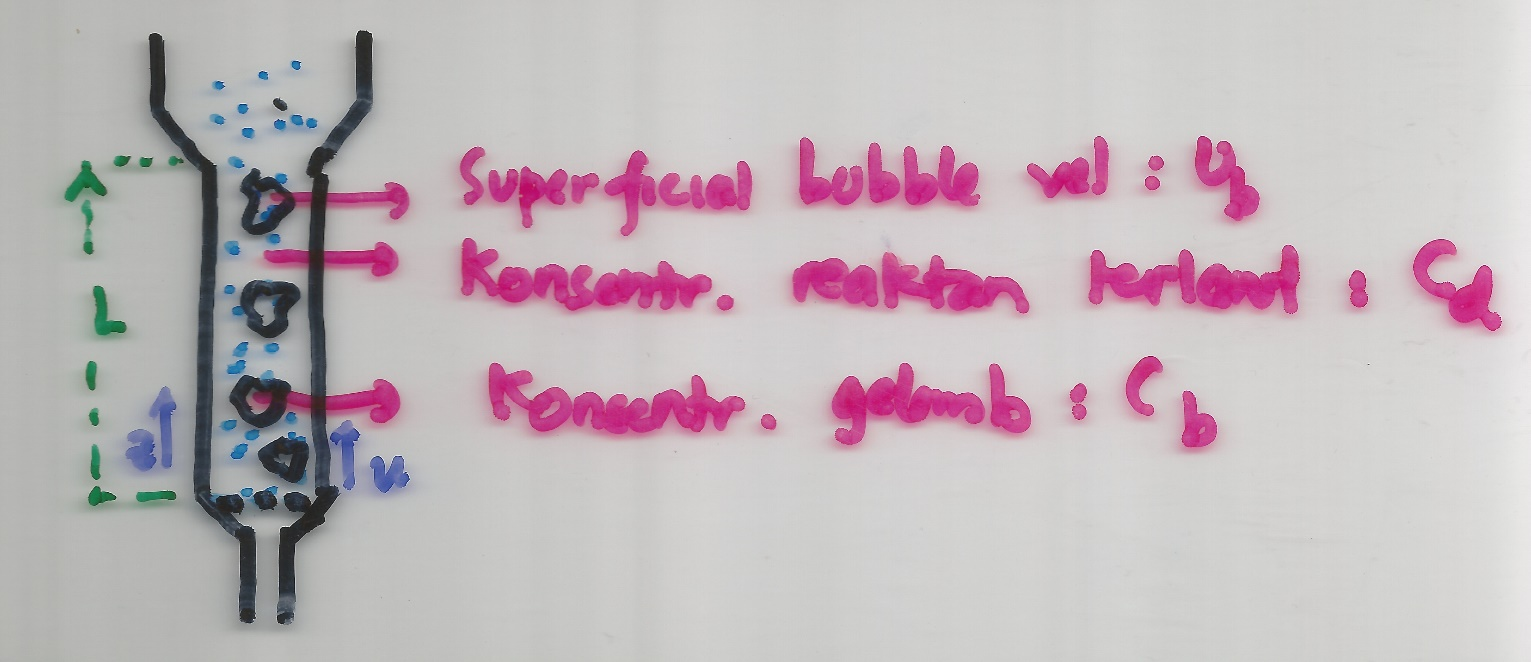 Superficial bubble vel : U_b
Konsentr. reaktan terlarut : C_d
L
Konsentr. gelemb : C_b
z
u